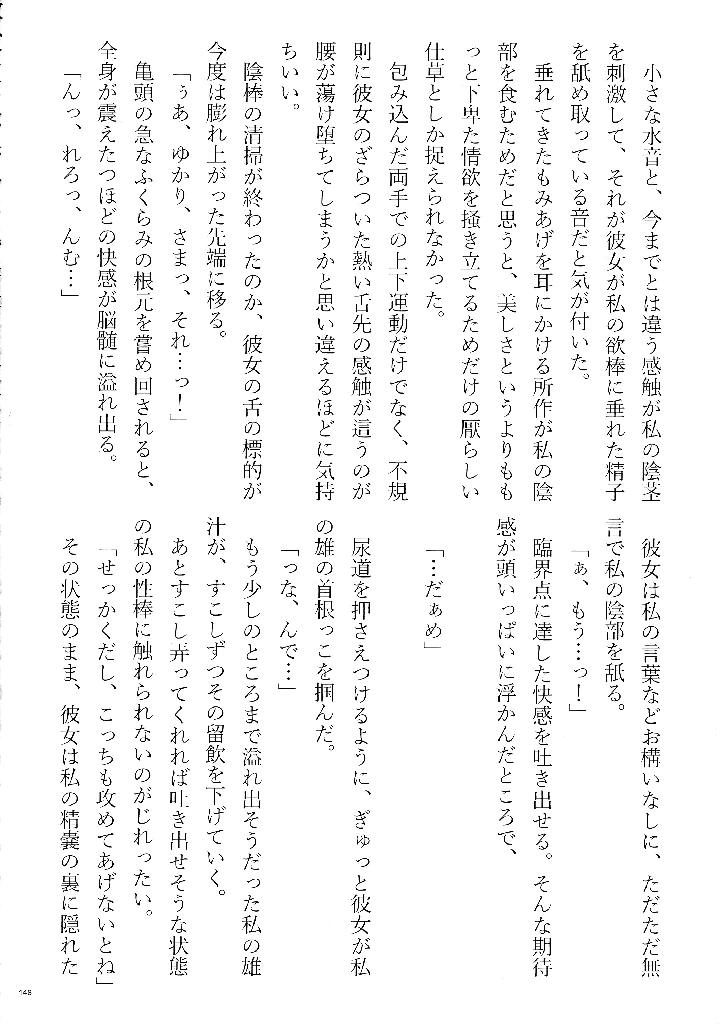 小さな水音と、今までとは違う感触が私の陰茎
を刺激して、それが彼女が私の欲棒に垂れた精子
を舐め取っている音だと気が付いた。
垂れてきたもみあげを耳にかける所作が私の陰
部を食むためだと思うと、美しさというよりもも
っと下卑た情欲を掻き立てるためだけの厭らしい
仕草としか捉えられなかった。
包み込んだ両手での上下運動だけでなく、不規
則に彼女のざらついた熱い舌先の感触が這うのが
腰が蕩け堕ちてしまうかと思い違えるほどに気持
ちいい。
陰棒の清掃が終わったのか、彼女の舌の標的が
今度は膨れ上がった先端に移る。
「ぅあ、ゆかり、さまっ、それ…っ!」
亀頭の急なふくらみの根元を嘗め回されると、
全身が震えたつほどの快感が脳髄に溢れ出る。
「んっ、れろっ、んむ…」
彼女は私の言葉などお構いなしに、ただただ無
言で私の陰部を舐る。
「ぁ、もう…っ!」
臨界点に達した快感を吐き出せる。そんな期待
感が頭いっぱいに浮かんだところで、
「…だぁめ」
尿道を押さえつけるように、ぎゅっと彼女が私
の雄の首根っこを掴んだ。
「っな、んで…」
もう少しのところまで溢れ出そうだった私の雄
汁が、すこしずつその留飲を下げていく。
あとすこし弄ってくれれば吐き出せそうな状態
の私の性棒に触れられないのがじれったい。
「せっかくだし、こっちも攻めてあげないとね」
その状態のまま、彼女は私の精嚢の裏に隠れた
148